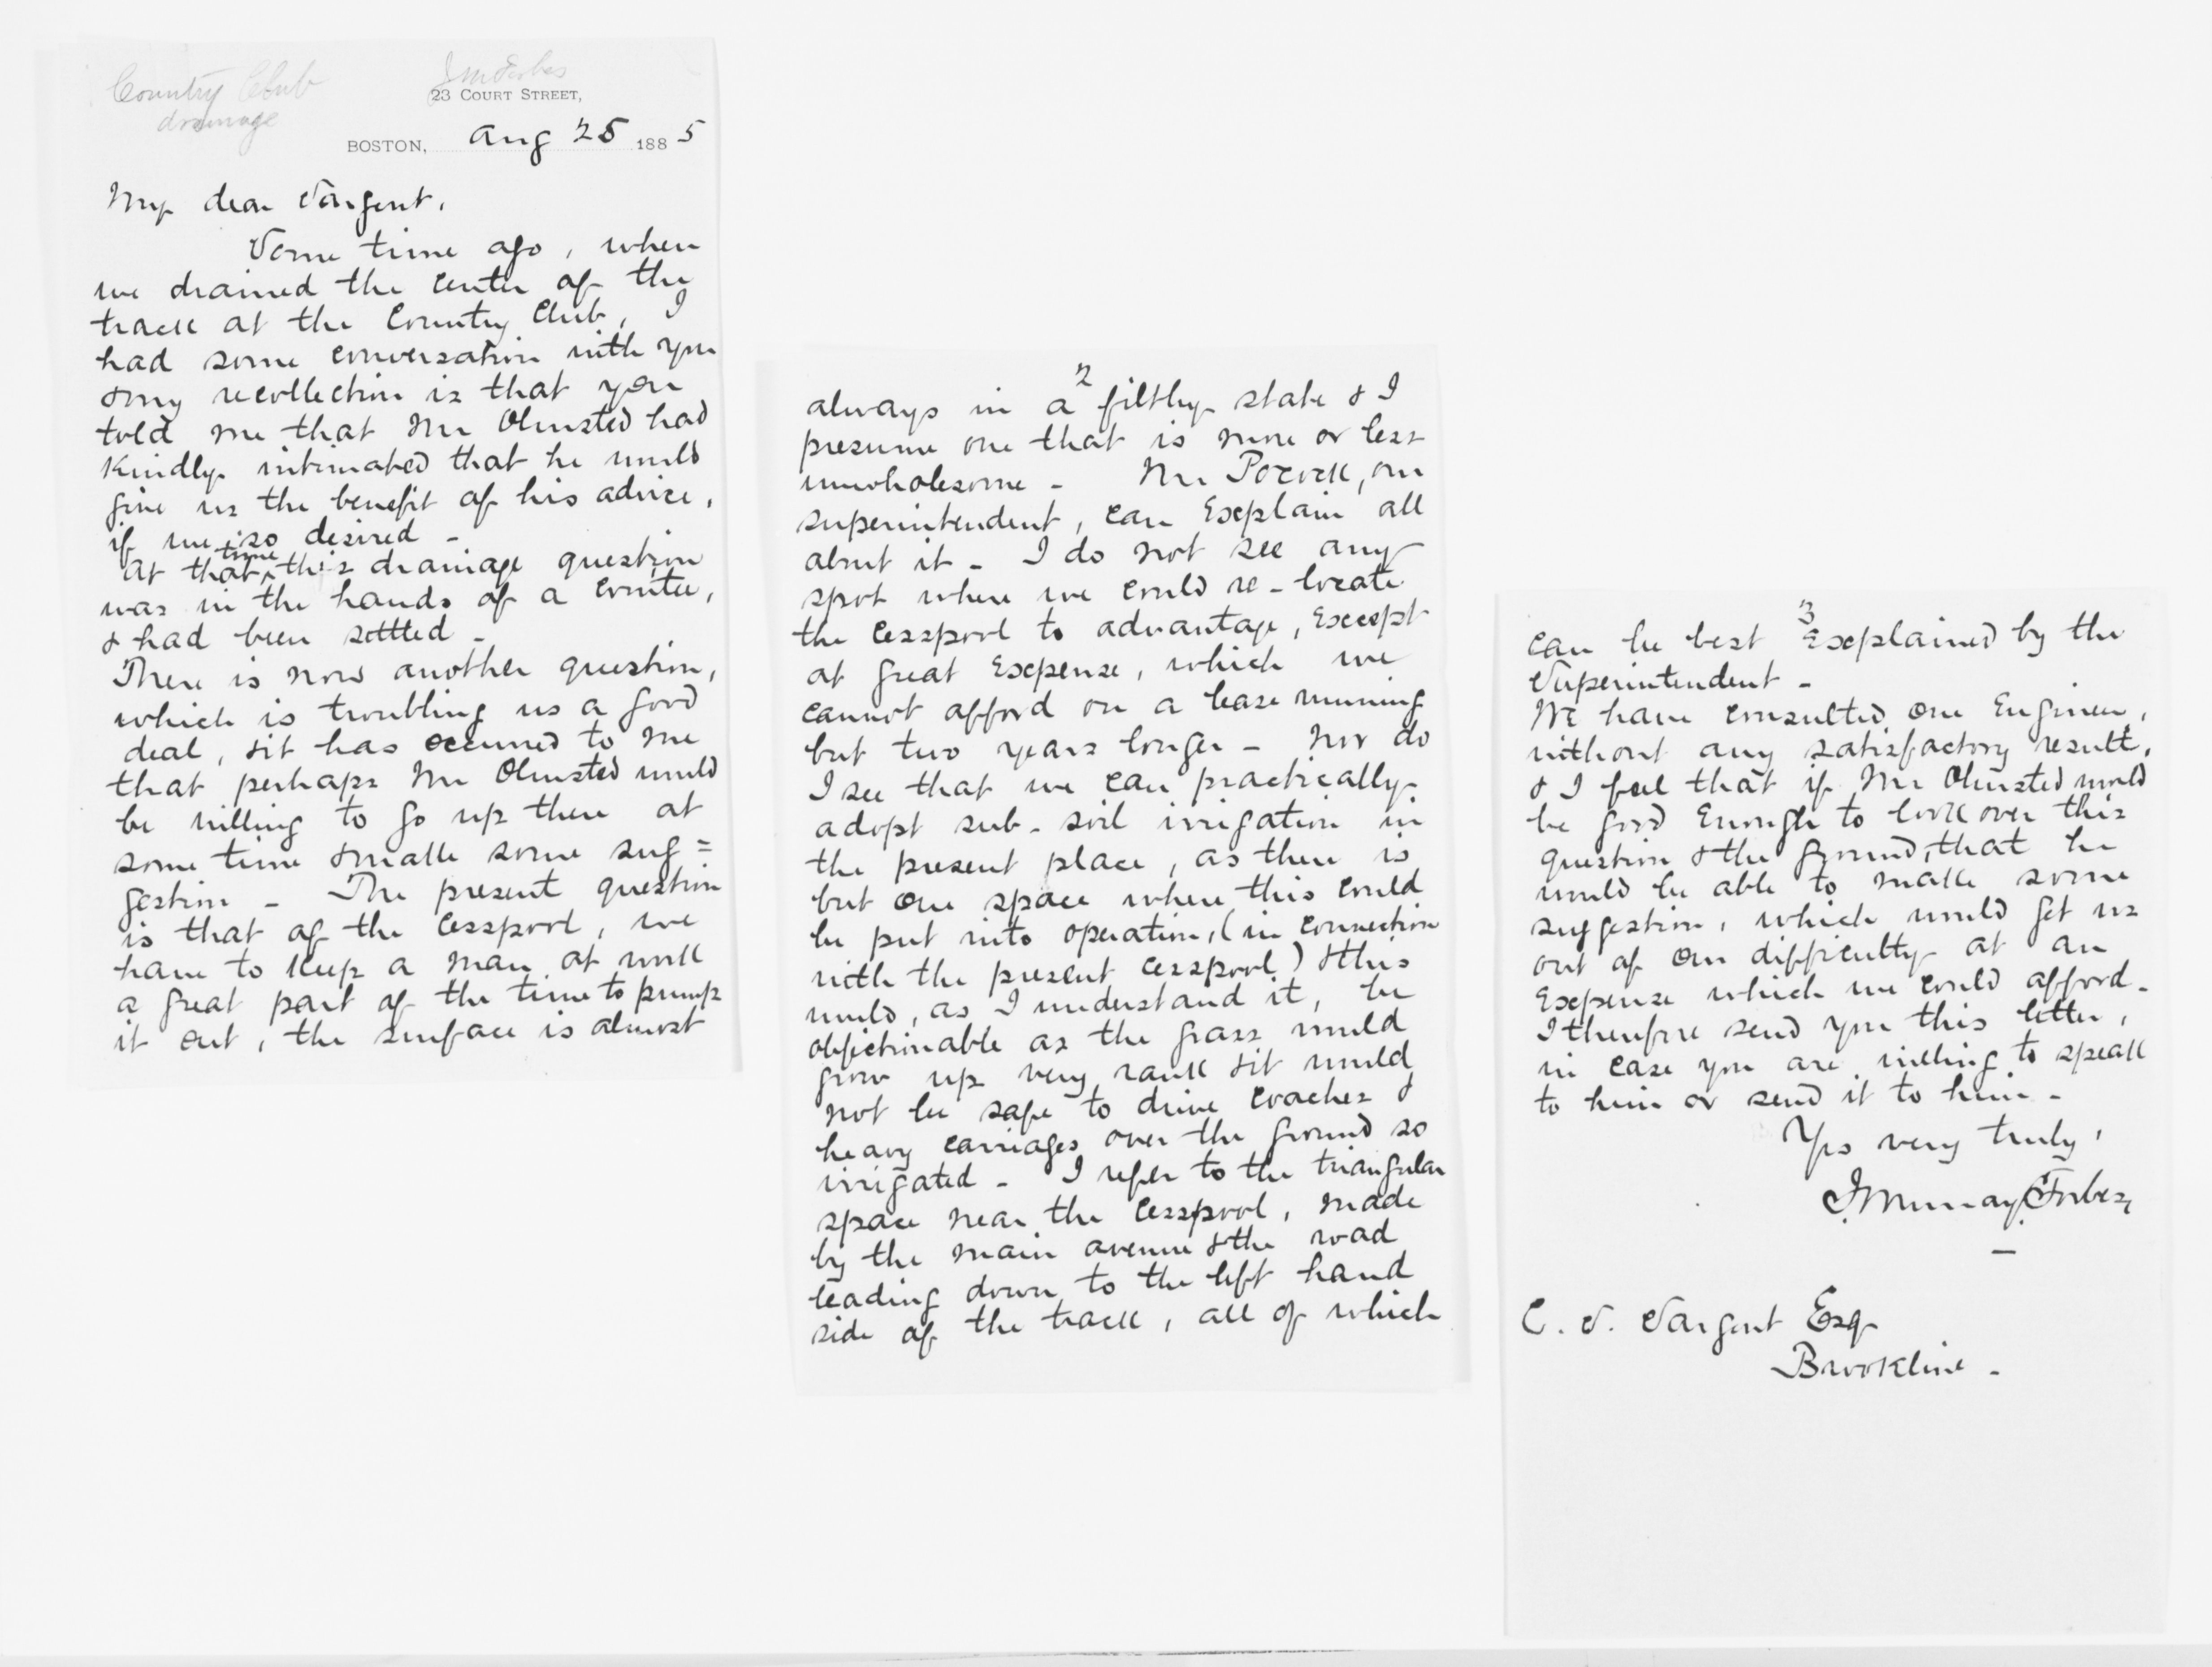 Country Club
drainage
J M Forbes
23 COURT STREET,
BOSTON, Aug 25 1885
My dear Sargent,
Some time ago, when
we drained the center of the
track at the Country Club, I
had some conversation with you
& my recollection is that you
told me that Mr Olmsted had
kindly intimated that he would
give us the benefit of his advice,
if we so desired -
At that time this drainage question
was in the hands of a comtee,
& had been settled -
There is now another question,
which is troubling us a good
deal, & it has occurred to me
that perhaps Mr Olmsted would
be willing to go up there at
some time & make some sug=
gestion - The present question
is that of the cesspool, we
have to keep a man at work
a great part of the time to pump
it out, the surface is almost
2
always in a filthy state & I
presume one that is more or less
unwholesome - Mr. Pocock, our
superintendent, can explain all
about it - I do not see any
spot where we could re-locate
the cesspool to advantage, except
at great expense, which we
cannot afford on a lease running
but two years longer - Nor do
I see that we can practically
adopt sub-soil irrigation in
the present place, as there is
but one space where this could
be put into operation, (in connection
with the present cesspool) & this
would, as I understand it, be
objectionable as the grass would
grow up very rank & it would
not be safe to drive coaches &
heavy carriages over the ground so
irrigated - I refer to the triangular
space near the cesspool, made
by the main avenue & the road
leading down to the left hand
side of the track, all of which
3
can be best explained by the
Superintendent -
We have consulted one Engineer,
without any satisfactory result,
& I feel that if Mr Olmsted would
be good enough to look over this
question & the ground, that he
would be able to make some
suggestion, which would get us
out of our difficulty at an
expense which we could afford -
I therefore send you this letter,
in case you are willing to speak
to him or send it to him -
Yrs very truly,
J. Murray Forbes
-
C. S. Sargent Esq
Brookline -